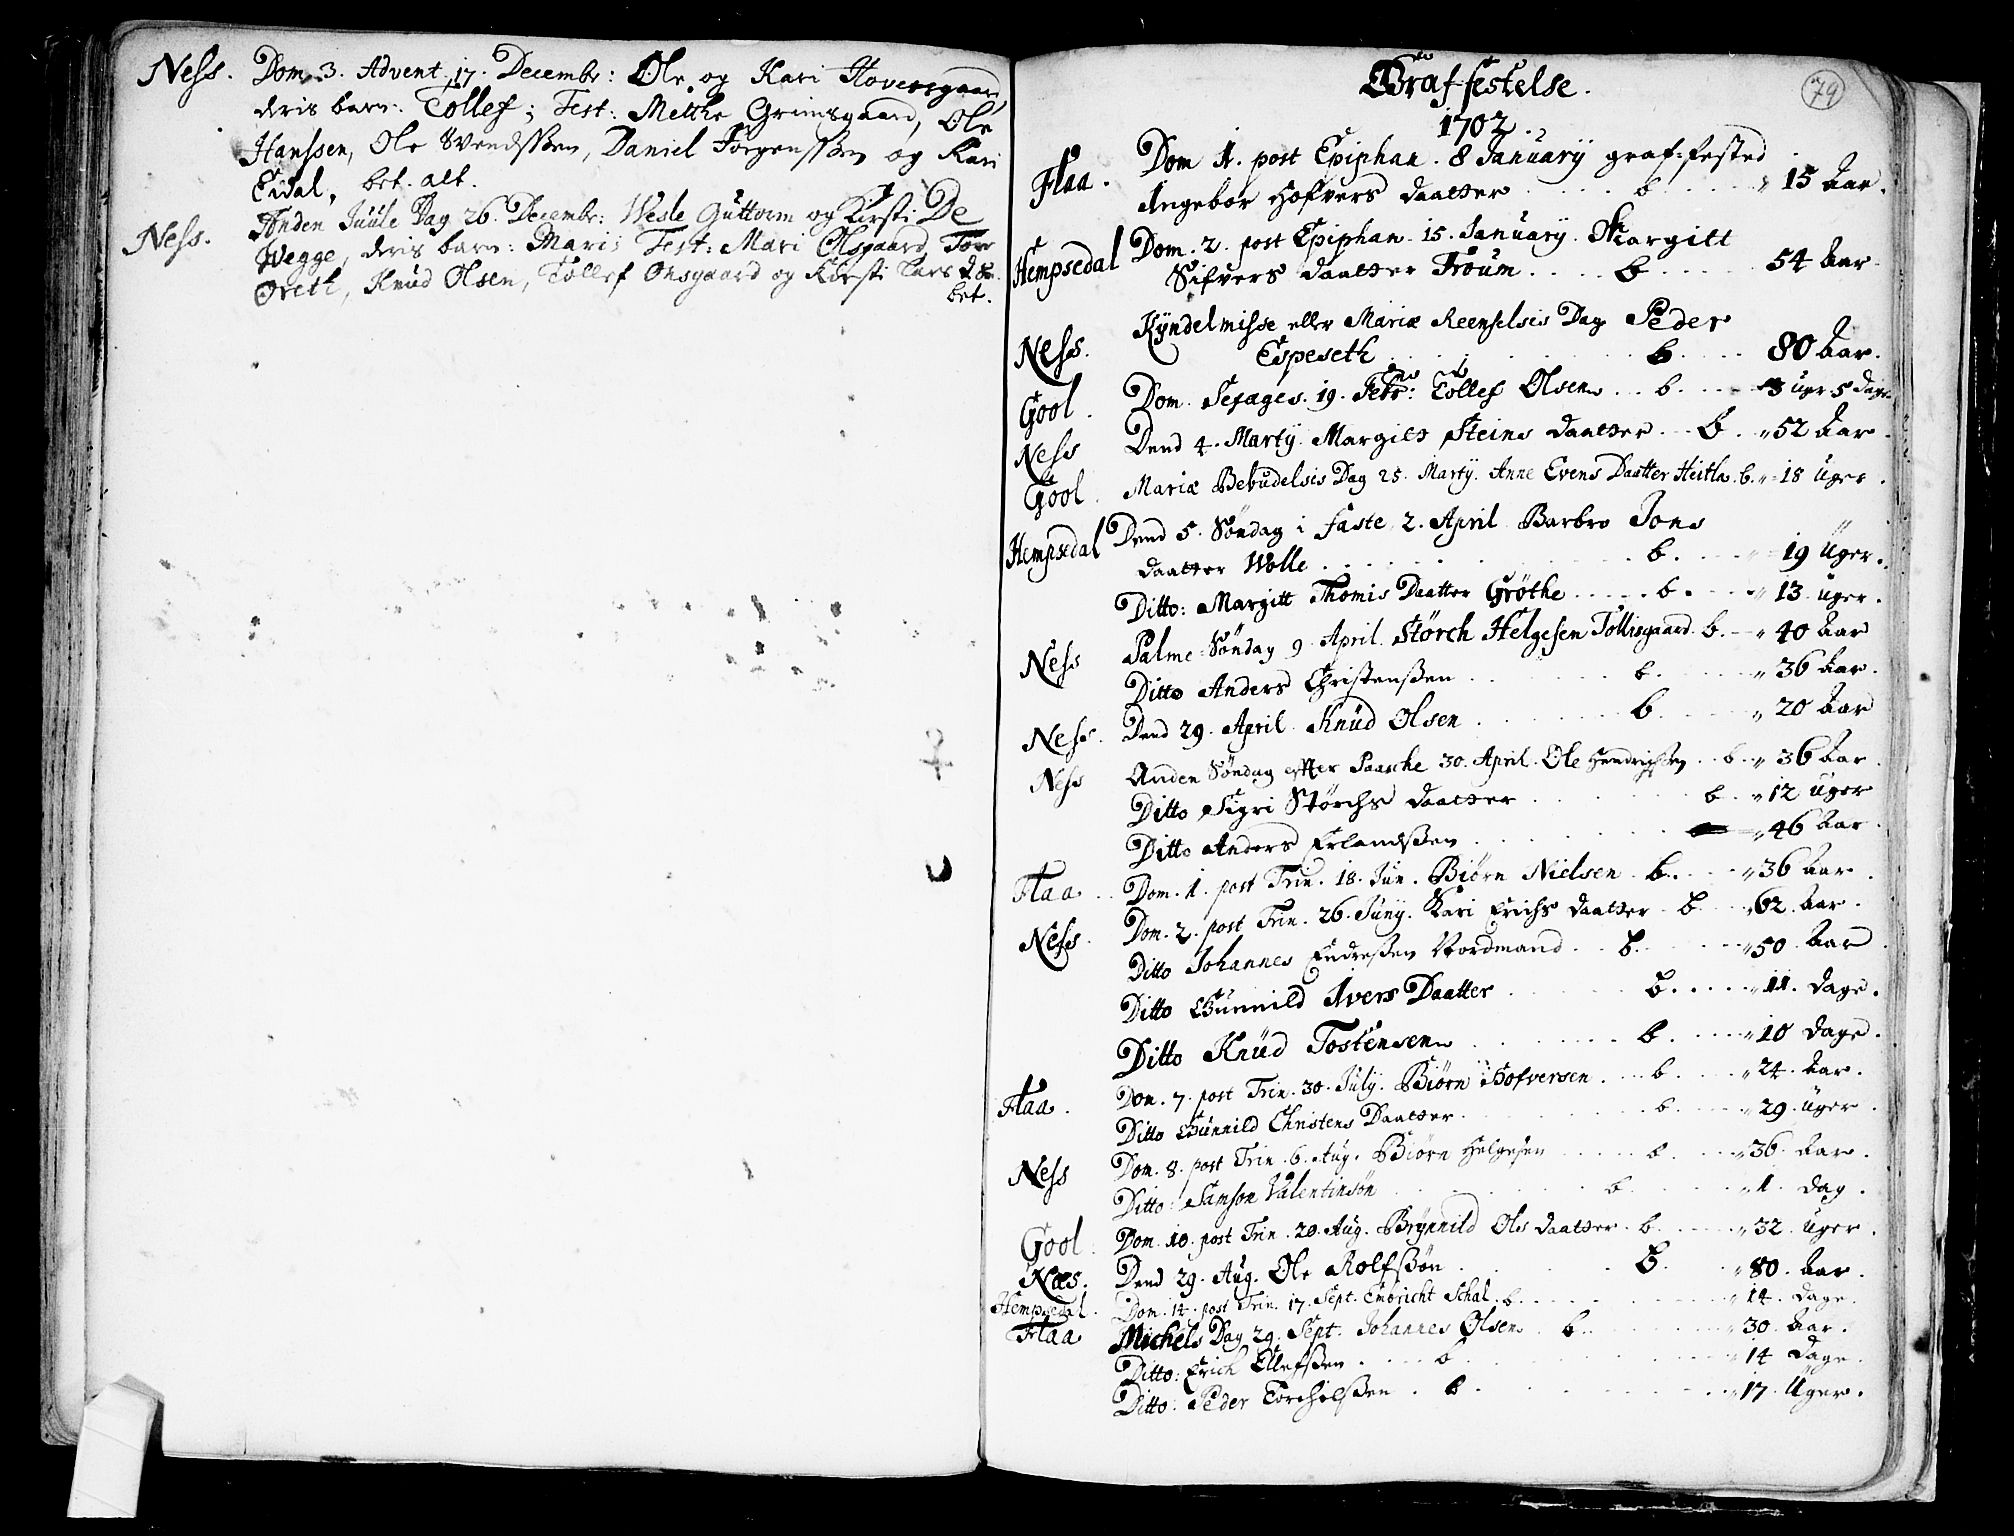 Ness. Dom. 3. Advent. 17. Decembr: Ole og Kari Hoversgaard
deris barn. Tollef; Test: Metthe Grimsgaard, Ole
Hanssen, Ole Svendssen, Daniel Jørgenssen og Kari
Eidal, bet. alt.
Ness. Anden Juule Dag 26. Decembr: Wesle Guttorm og Kirsti De
Wegge, deris barn: Mari; Test: Mari Olsgaard, Tore
Oreth, Knud Olsen, Tollef Onsgaard og Kirsti Lars d.
bet.
79
Graf festelse.
1702.
Flaa. Dom 1. post Epiphan. 8 January graf-fested
Ingebor Hofvers daatter b. 15 Aar.
Hempsedal Dom. 2. post Epiphan. 15. January. Margitt
Sifvers daatter Troum. b. 54 Aar
Ness. Kyndelmisse eller Mariæ Reenselsis Dag Peder
Espeseth b. 80 Aar.
Gool. Dom. Sexages. 19. Febr: Tollef Olsen b. 3 Uger 5 dage
Ness Dend 4. Martij Margitt Steins daatter b. 52 Aar
Gool. Mariæ Bebudelsis Dag 25. Martij. Anne Evens Daatter Heitla. b. 18 Uger.
Hempsedal Dend 5. Søndag i faste 2. April Barbro Jons
daatter Wolle b. 19 Uger.
Ditto: Margitt Thomis Daatter Grøthe b. 13 uger.
Ness Palme Søndag 9 April. Størch Helgesen Tollisgaard b. 40 Aar
Ditto Anders Christenssen b. 36 Aar.
Ness. Dend 29. April Knud Olsen b. 20 Aar
Ness Anden Søndag effter Paasche 30. April. Ole Hendrichsen b. 36 Aar
Ditto Sigri Størchs daatter b. 12 Uger
Ditto Anders Erlandssen 46 Aar
Flaa Dom. 1. post Trin. 18. Jun. Biørn Nielsen b. 36 Aar
Ness. Dom. 2. post Trin. 26. Junij. Kari Erichs daatter b. 62. Aar.
Ditto Johannes Endressen Nordmand b. 50 Aar
Ditto Gunnild Ivers Daatter b. 11. dage.
Ditto Knud Tostensen b. 10 dage.
Flaa. Dom. 7. post Trin. 30. Julij. Biørn Hofversen b. 24. Aar.
Ditto Gunnild Christens Daatter b. 29. Uger.
Ness Dom. 8. post Trin. 6. Aug. Biørn Helgesen b. 36. Aar.
Ditto. Samson Valentinsøn b. 1. dag.
Gool. Dom. 10. post Trin. 20. Aug. Brynnild Ols daatter b. 32. Uger.
Næs. Dend 29. Aug. Ole Rolfssøn b. 80. Aar.
Hempsedal. Dom. 14. post Trin. 17. Sept. Enbricht Schal b. 14. dage.
Flaa Michels Dag 29. Sept. Johannes Olsen b. 30. Aar.
Ditto: Erich Ellefssen b. 14 Dage.
Ditto. Peder Torchelssen b. 17. Uger.